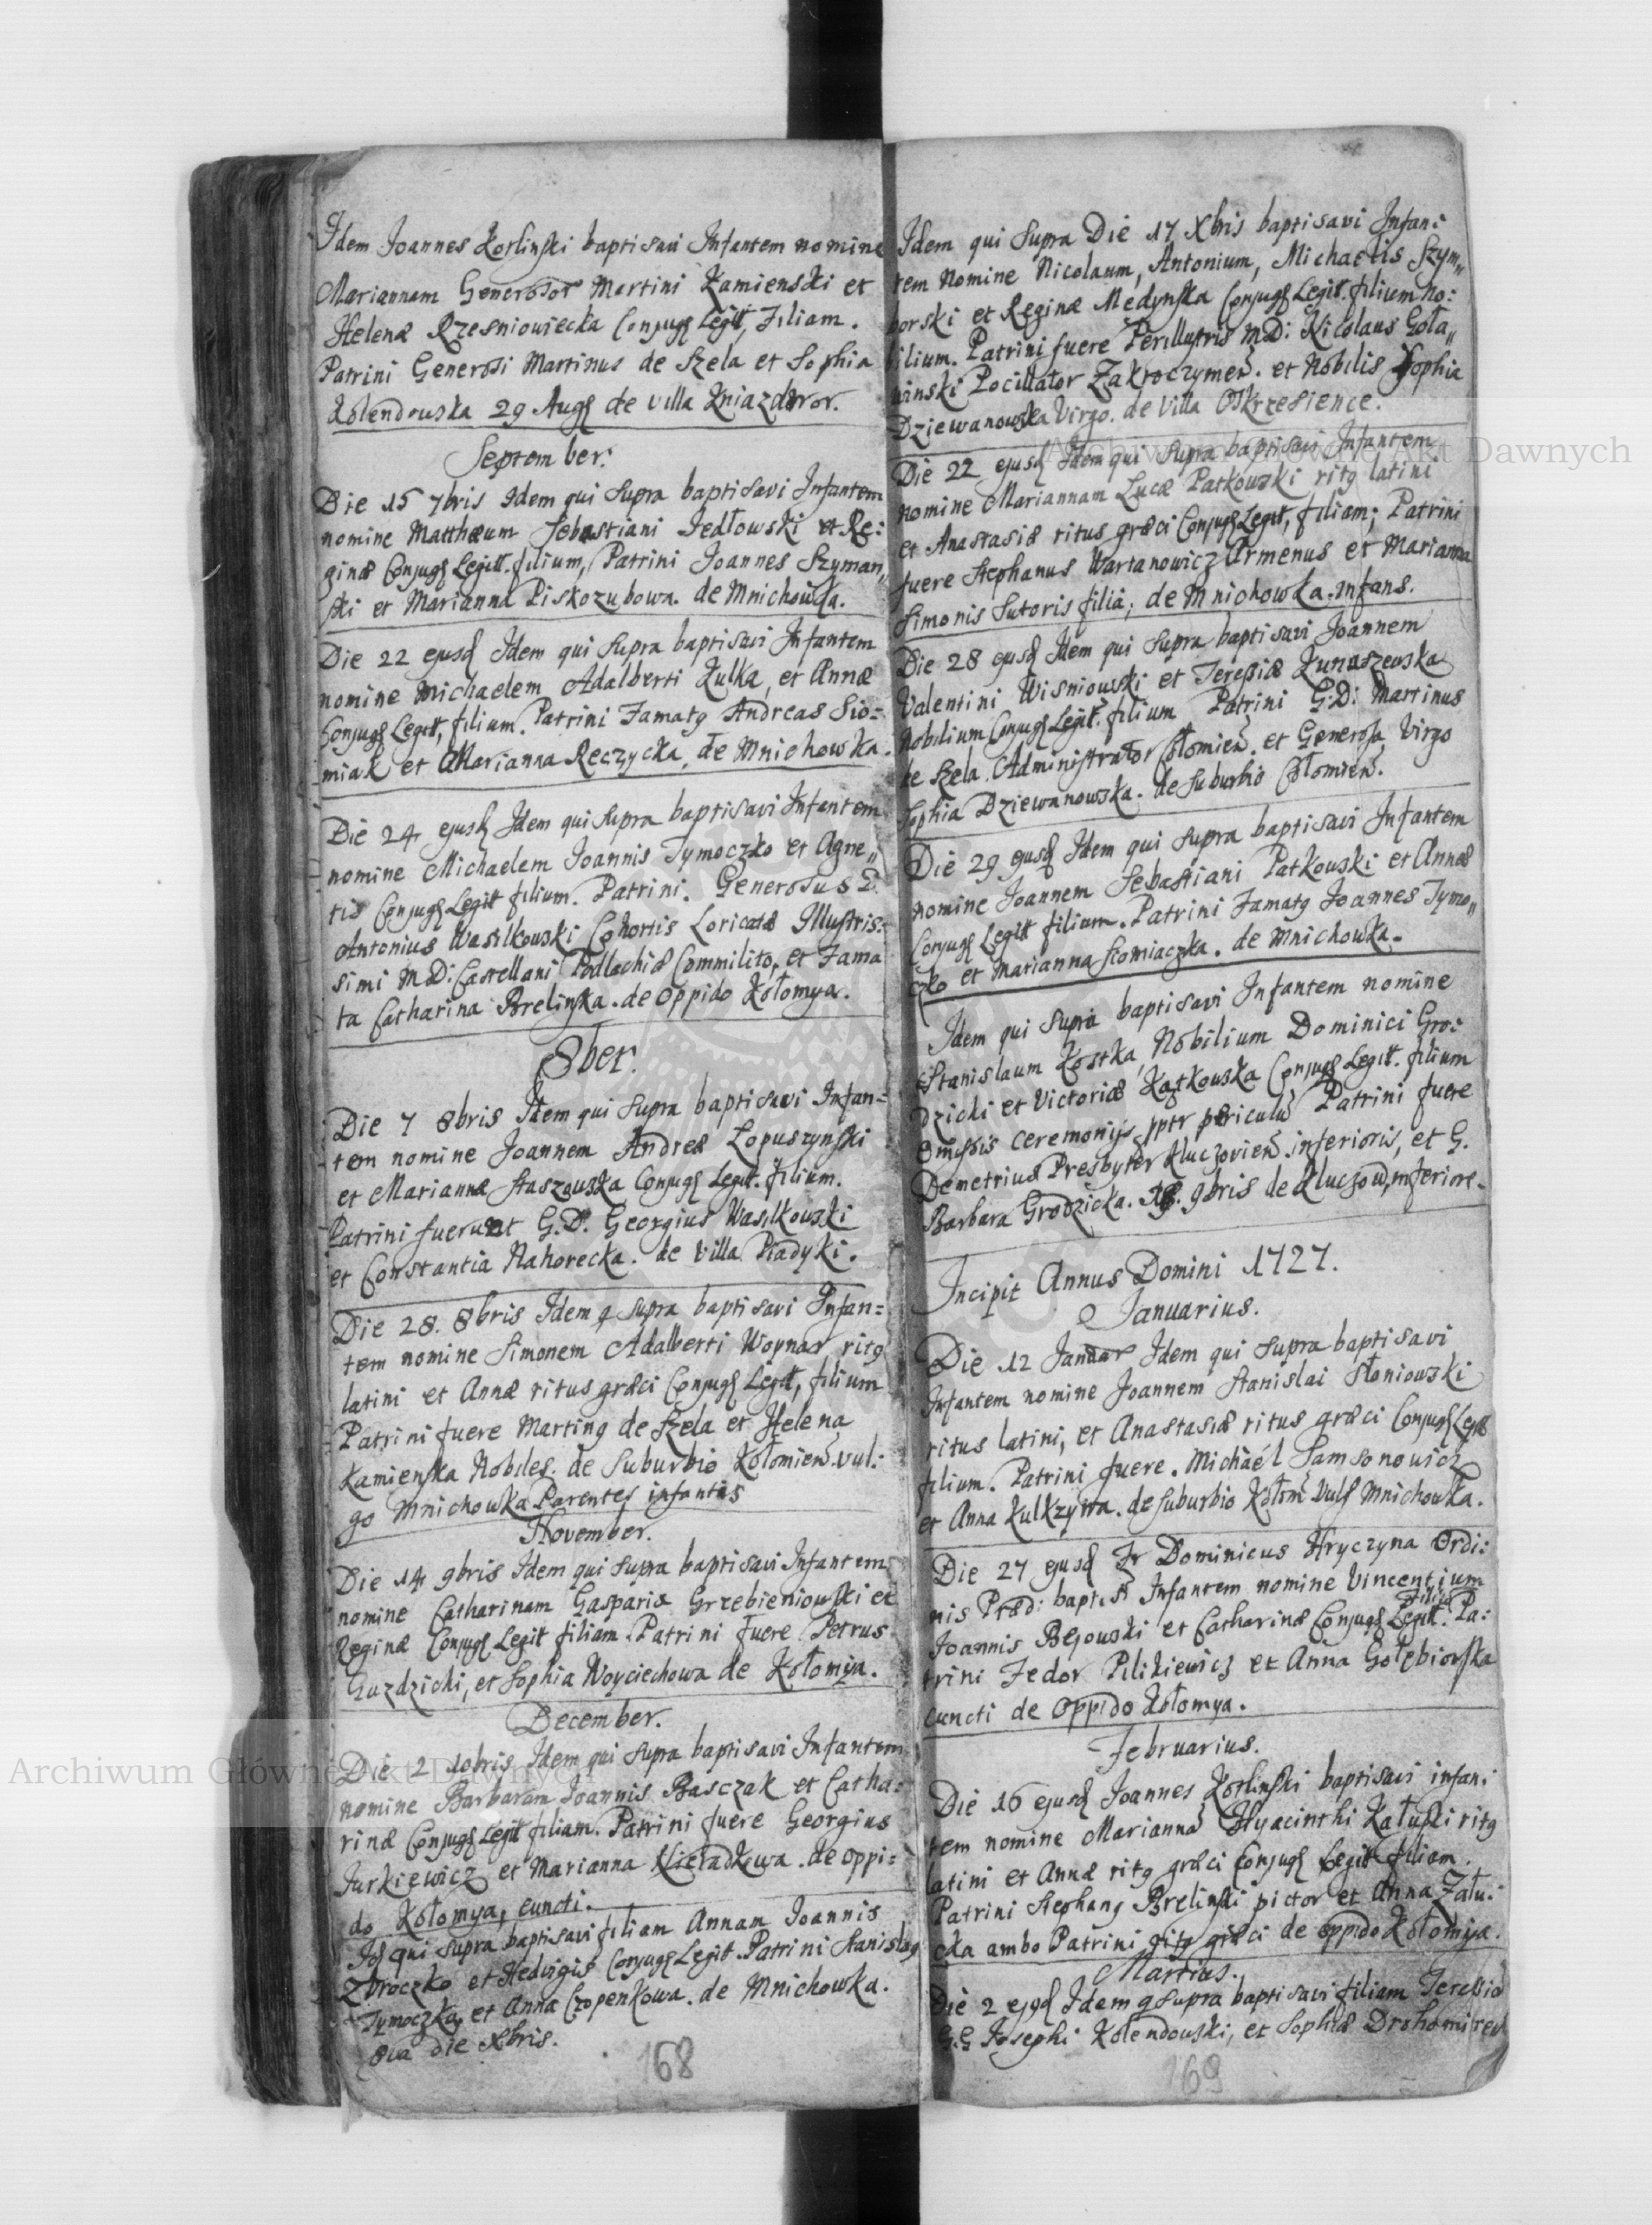 Idem Joannes Korlinski baptisavi Infantem nomine
Mariannam Generosor Martini Kamienski et
Helenæ Rzesniowiecka Conjug Legitt, Filiam.
Patrini Generosi Martinus de Szela et Sophia
Kolendowska 29 Aug de villa Kniazdwor.
September:
Die 15 7bris Idem qui supra baptisavi Infantem
nomine Matthæum Sebastiani Jedłowski et Re:
ginæ Conjug Legitt. filium, Patrini Joannes Szyman,,
ski et Marianna Piskozubowa. de Mnichowka.
Die 22 ejusd Idem qui supra baptisavi Infantem
nomine Michaelem Adalberti Kulka, et Annæ
Conjug Legitt, filium. Patrini Famatg Andreas Sio=
miak et Marianna Reczycka, de Mnichowka.
Die 24 ejusd Idem qui supra baptisavi Infantem
nomine Michaelem Joannis Tymoczko et Agne,,
tis Conjug Legitt filium. Patrini. Generosus D.
Antonius Wasilkowski Cohortis Loricatæ Illustris:
simi M.D: Castellani Podlachiæ Commilito, et Fama
ta Catharina Brelinska. de oppido Kołomya.
8ber.
Die 7 8bris Idem qui supra baptisavi Infan=
tem nomine Joannem Andreæ Lopuszynski
et Mariannæ Staszowska Conjug Legitt. filium.
Patrini fuerunt G.D. Georgius Wasilkowski
et Constantia Nahorecka. de Villa Piadyki.
Die 28. 8bris Idem q supra baptisavi Infan=
tem nomine Simonem Adalberti Woynar ritg
latini et Annæ ritus græci Conjug Legitt, filium
Patrini fuere Marting de Szela et Helena
Kamienska Nobiles. de Suburbio Kołomien. vul:
go Mnichowka Parentes infantis
November.
Die 14 9bris Idem qui supra baptisavi Infantem
nomine Catharinam Gasparis Grzebieniowski et
Reginæ Conjug Legitt filiam. Patrini fuere Petrus
Guzdzicki, et Sophia Woyciechowa de Kołomyia.
December.
Die 2 10bris Idem qui supra baptisavi Infantem
nomine Barbaram Joannis Basczak et Catha:
rinæ Conjug Legitt filiam. Patrini fuere Georgius
Jurkiewicz et Marianna . de oppi=
do Kołomya, cuncti.
Id qui supra baptisavi filiam Annam Joannis
Zbroczko et Hedvigis Conjug Legitt. Patrini Stanislag
Tymoczko et Anna Czopenkowa. de Mnichowka.
8va die Xbris.
168
Idem qui supra Die 17 Xbris baptisavi Infan:
tem Nomine Nicolaum, Antonium, Michaelis Szym,,
borski et Reginæ Medynska Conjug Legitt. filium No:
bilium. Patrini fuere Perillustris M.D: Nicolaus Goła,,
winski Pocillator Zakroczymen. et Nobilis Sophia
Dziewanowska Virgo. de Villa Oskrzesience.
Die 22 ejusd Idem qui supra baptisavi Infantem
nomine Mariannam Lucæ Patkowski ritg latini
et Anastasiæ ritus græci Conjug Legitt, filiam; Patrini
fuere Stephanus Wartanowicz Armenus et Marianna
Simonis Sutoris filia; de Mnichowka. Infans.
Die 28 ejusd Idem qui supra baptisavi Joannem
Valentini Wisniowski et Teressiæ Kunaszewska
Nobilium Conjug Legitt. filium Patrini G.D: Martinus
de Szela Administrator Cołomien. et Generosa Virgo
Sophia Dziewanowska. de Suburbio Cołomien.
Die 29 ejusd Idem qui supra baptisavi Infantem
nomine Joannem Sebastiani Patkowski et Annæ
Conjug Legitt filium. Patrini Famatg Joannes Tymo,,
czko et Marianna Siomiaczka. de Mnichowka.
Idem qui supra baptisavi Infantem nomine
Stanislaum Kostka, Nobilium Dominici Gro:
dzicki et Victoriæ Kątkowska Conjug Legitt. filium
omissis ceremonijs pptr periculu Patrini fuere
Demetrius Presbyter Kluczovien. inferioris, et G.
Barbara Grodzicka. 9bris de Kluczow inferiore.
Incipit Annus Domini 1727.
Januarius.
Die 12 Januar Idem qui supra baptisavi
Infantem nomine Joannem Stanislai Słoniowski
ritus latini, et Anastasiæ ritus græci Conjug Legitt
filium. Patrini fuere. Michaël Samsonowicz
et Anna Kulkzyna. de suburbio Kołom Vulg Mnichowka.
Die 27 ejusd Fr Dominicus Hryczyna Ordi:
nis Præd: bapt. Infantem nomine Vincentium
Joannis Bejowski et Catharinæ Conjug Legitt. filiu Pa:
trini Fedor Pilikiewicz et Anna Gołębiowska
cuncti de oppido Kołomya.
Februarius.
Die 16 ejusd Joannes Korlinski baptisavi infan:
tem nomine Marianna Hyacinthi Kałuski ritg
latini et Annæ ritg græci Conjug Legitt filiam.
Patrini Stephang Brelinski pictor et Anna Zału:
cka ambo Patrini ritg græci de oppido Kołomyia.
Martius.
Die 2 ejusd Idem q supra baptisavi filiam Teressia
G.G Josephi Kolendowski, et Sophiæ
169
Archiwum Główne Akt Dawnych
Archiwum Główne Akt Dawnych